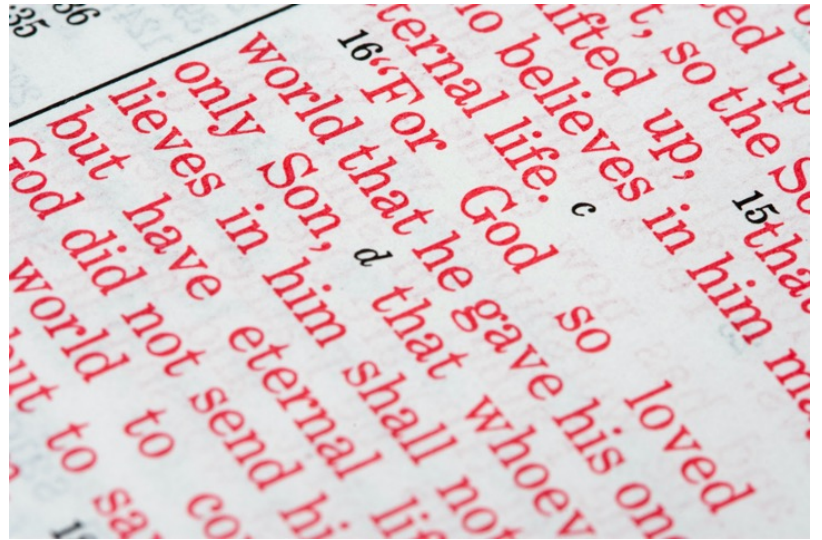 36
35
ed up
t, so the So
ifted up, 15that
o believes in him ma
ternal life. c
16“For God so loved
world that he gave his one
only Son, d that whoev
lieves in him shall not
but have eternal lif
God did not send hi
world to co
ut to sa